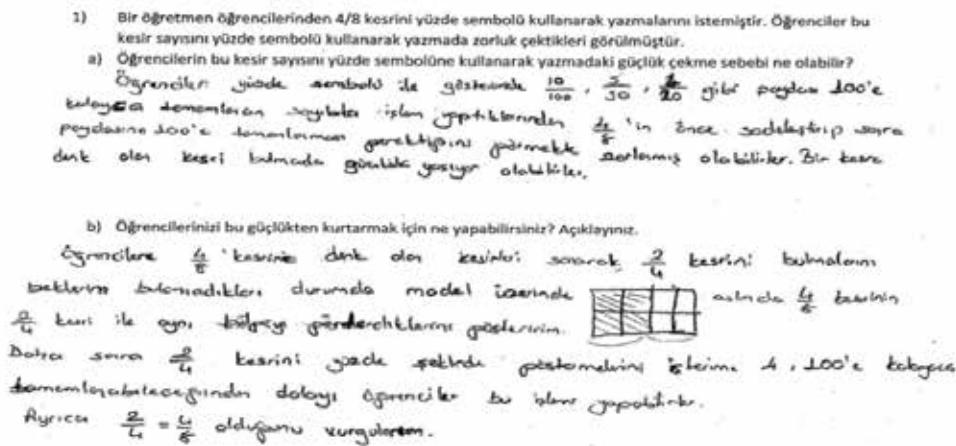 1) Bir öğretmen öğrencilerinden 4/8 kesrini yüzde sembolü kullanarak yazmalarını istemiştir. Öğrenciler bu
kesir sayısını yüzde sembolü kullanarak yazmada zorluk çektikleri görülmüştür.
a) Öğrencilerin bu kesir sayısını yüzde sembolüne kullanarak yazmadaki güçlük çekme sebebi ne olabilir?
Öğrenciler yüzde sembolü ile gösterimde 10/100, 5/50, 2/20 gibi paydası 100'e
kolayca tamamlanan sayılarla işlem yaptıklarından 4/8 'in önce sadeleştirip sonra
paydasını 100'e tamamlanması gerektiğini görmekte zorlanmış olabilirler. Bir kesre
denk olan kesri bulmada güçlük yaşıyor olabilirler.
b) Öğrencilerinizi bu güçlükten kurtarmak için ne yapabilirsiniz? Açıklayınız.
Öğrencilere 4/8 'kesrine denk olan kesirleri sorarak 2/4 kesrini bulmalarını
beklerim bulamadıkları durumda model üzerinde aslında 4/8 kesrinin
2/4 kesri ile aynı bölgeyi gösterdiklerini gösteririm.
Daha sonra 2/4 kesrini yüzde şeklinde göstermelerini isterim. 4, 100'e kolayca
tamamlanabileceğinden dolayı öğrenciler bu işlemi yapabilirler.
Ayrıca 2/4 = 4/8 olduğunu vurgularım.